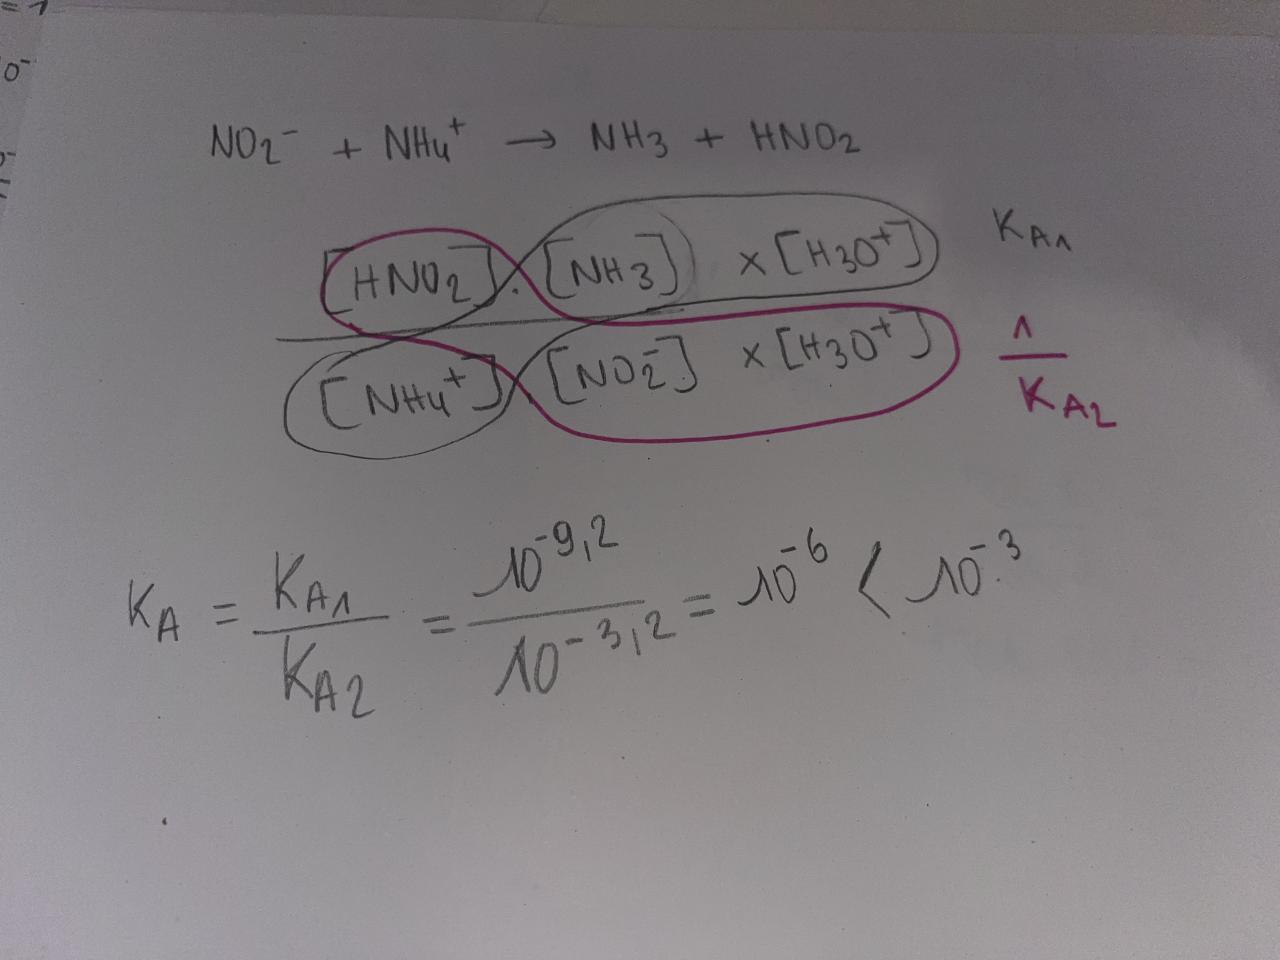 = 1
0⁻
NO₂⁻ + NH₄⁺ → NH₃ + HNO₂
[HNO₂] · [NH₃] × [H₃O⁺] K_A1
[NH₄⁺] [NO₂⁻] × [H₃O⁺] 1/K_A2
K_A = K_A1/K_A2 = 10^-9,2/10^-3,2 = 10^-6 < 10^-3